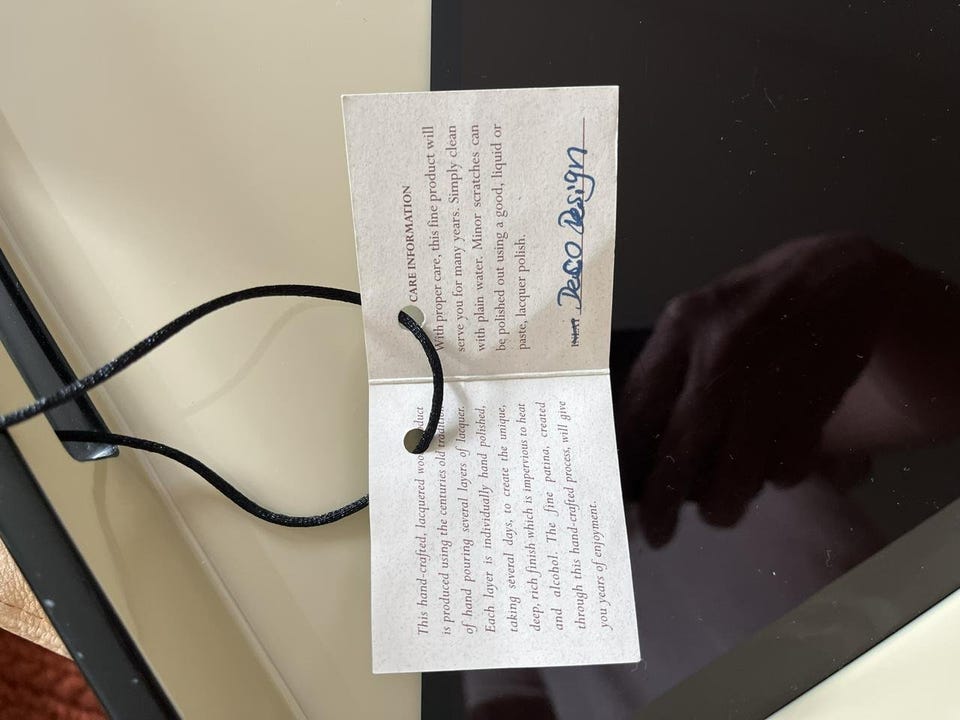 This hand-crafted, lacquered wood product
is produced using the centuries old tradition
of hand pouring several layers of lacquer.
Each layer is individually hand polished,
taking several days, to create the unique,
deep, rich finish which is impervious to heat
and alcohol. The fine patina, created
through this hand-crafted process, will give
you years of enjoyment.
CARE INFORMATION
With proper care, this fine product will
serve you for many years. Simply clean
with plain water. Minor scratches can
be polished out using a good, liquid or
paste, lacquer polish.
INLAY Deco Design